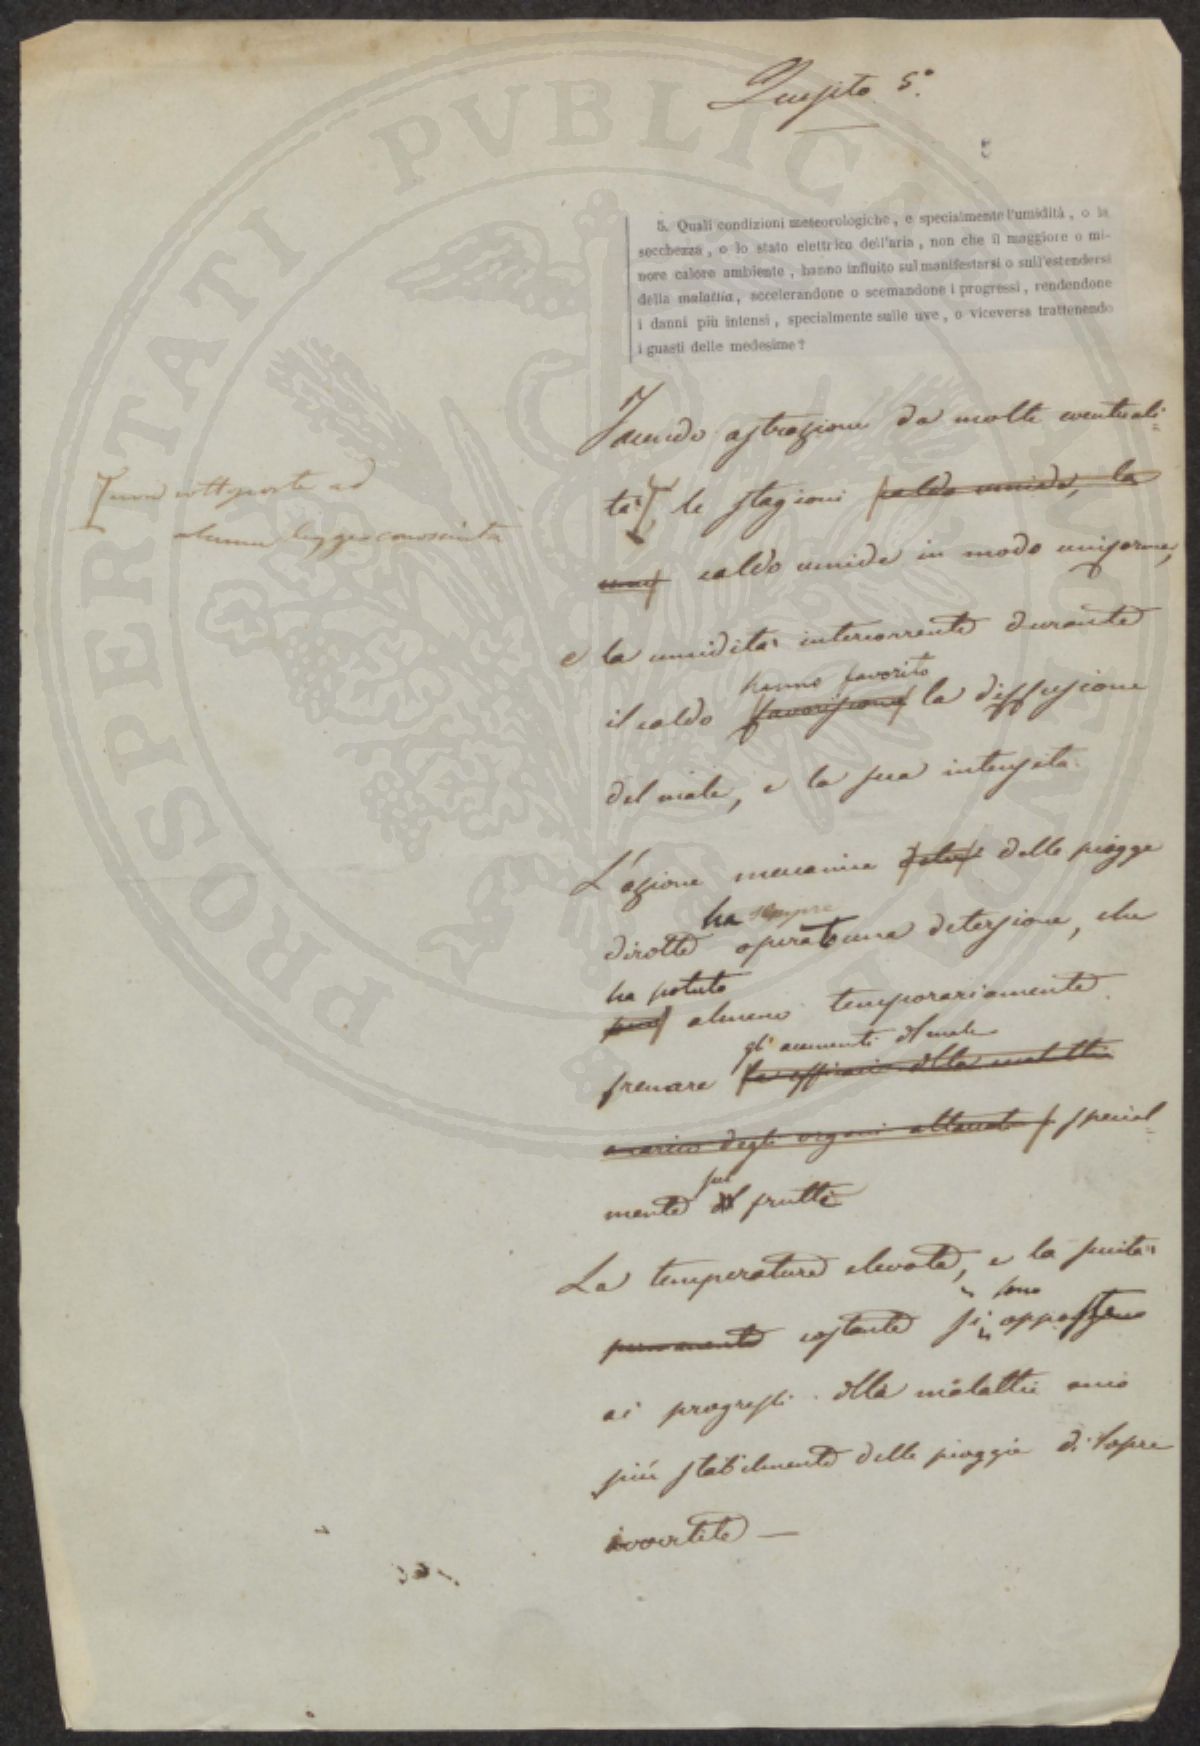 Quesito 5.°
5. Quali condizioni meteorologiche, e specialmente l'umidità, o la
secchezza, o lo stato elettrico dell'aria, non che il maggiore o mi-
nore calore ambiente, hanno influito sul manifestarsi o sull'estendersi
della malattia, accelerandone o scemandone i progressi, rendendone
i danni più intensi, specialmente sulle uve, o viceversa trattenendo
i guasti delle medesime?
Facendo astrazione da molte eventuali=
tà le stagioni caldo umide, la
caldo umide in modo uniforme,
e la umidità intercorrente durante
hanno favorito
il caldo favoriscono la diffusione
del male, e la sua intensità.
non sottoposte ad
alcuna legge conosciuta
L'azione meccanica delle piogge
ha sempre
dirotte operato una detersione, che
ha potuto
può almeno temporariamente
gl'aumenti del male
frenare la efficacia della malattia
a carico degli organi attaccati special=
sui
mente frutti
La temperatura elevata, e la siccità
sono
permanente costante si oppo
ai progressi della malattia anco
più stabilmente delle pioggie di sopra
avvertite —
PROSPERITATI PVBLICAE